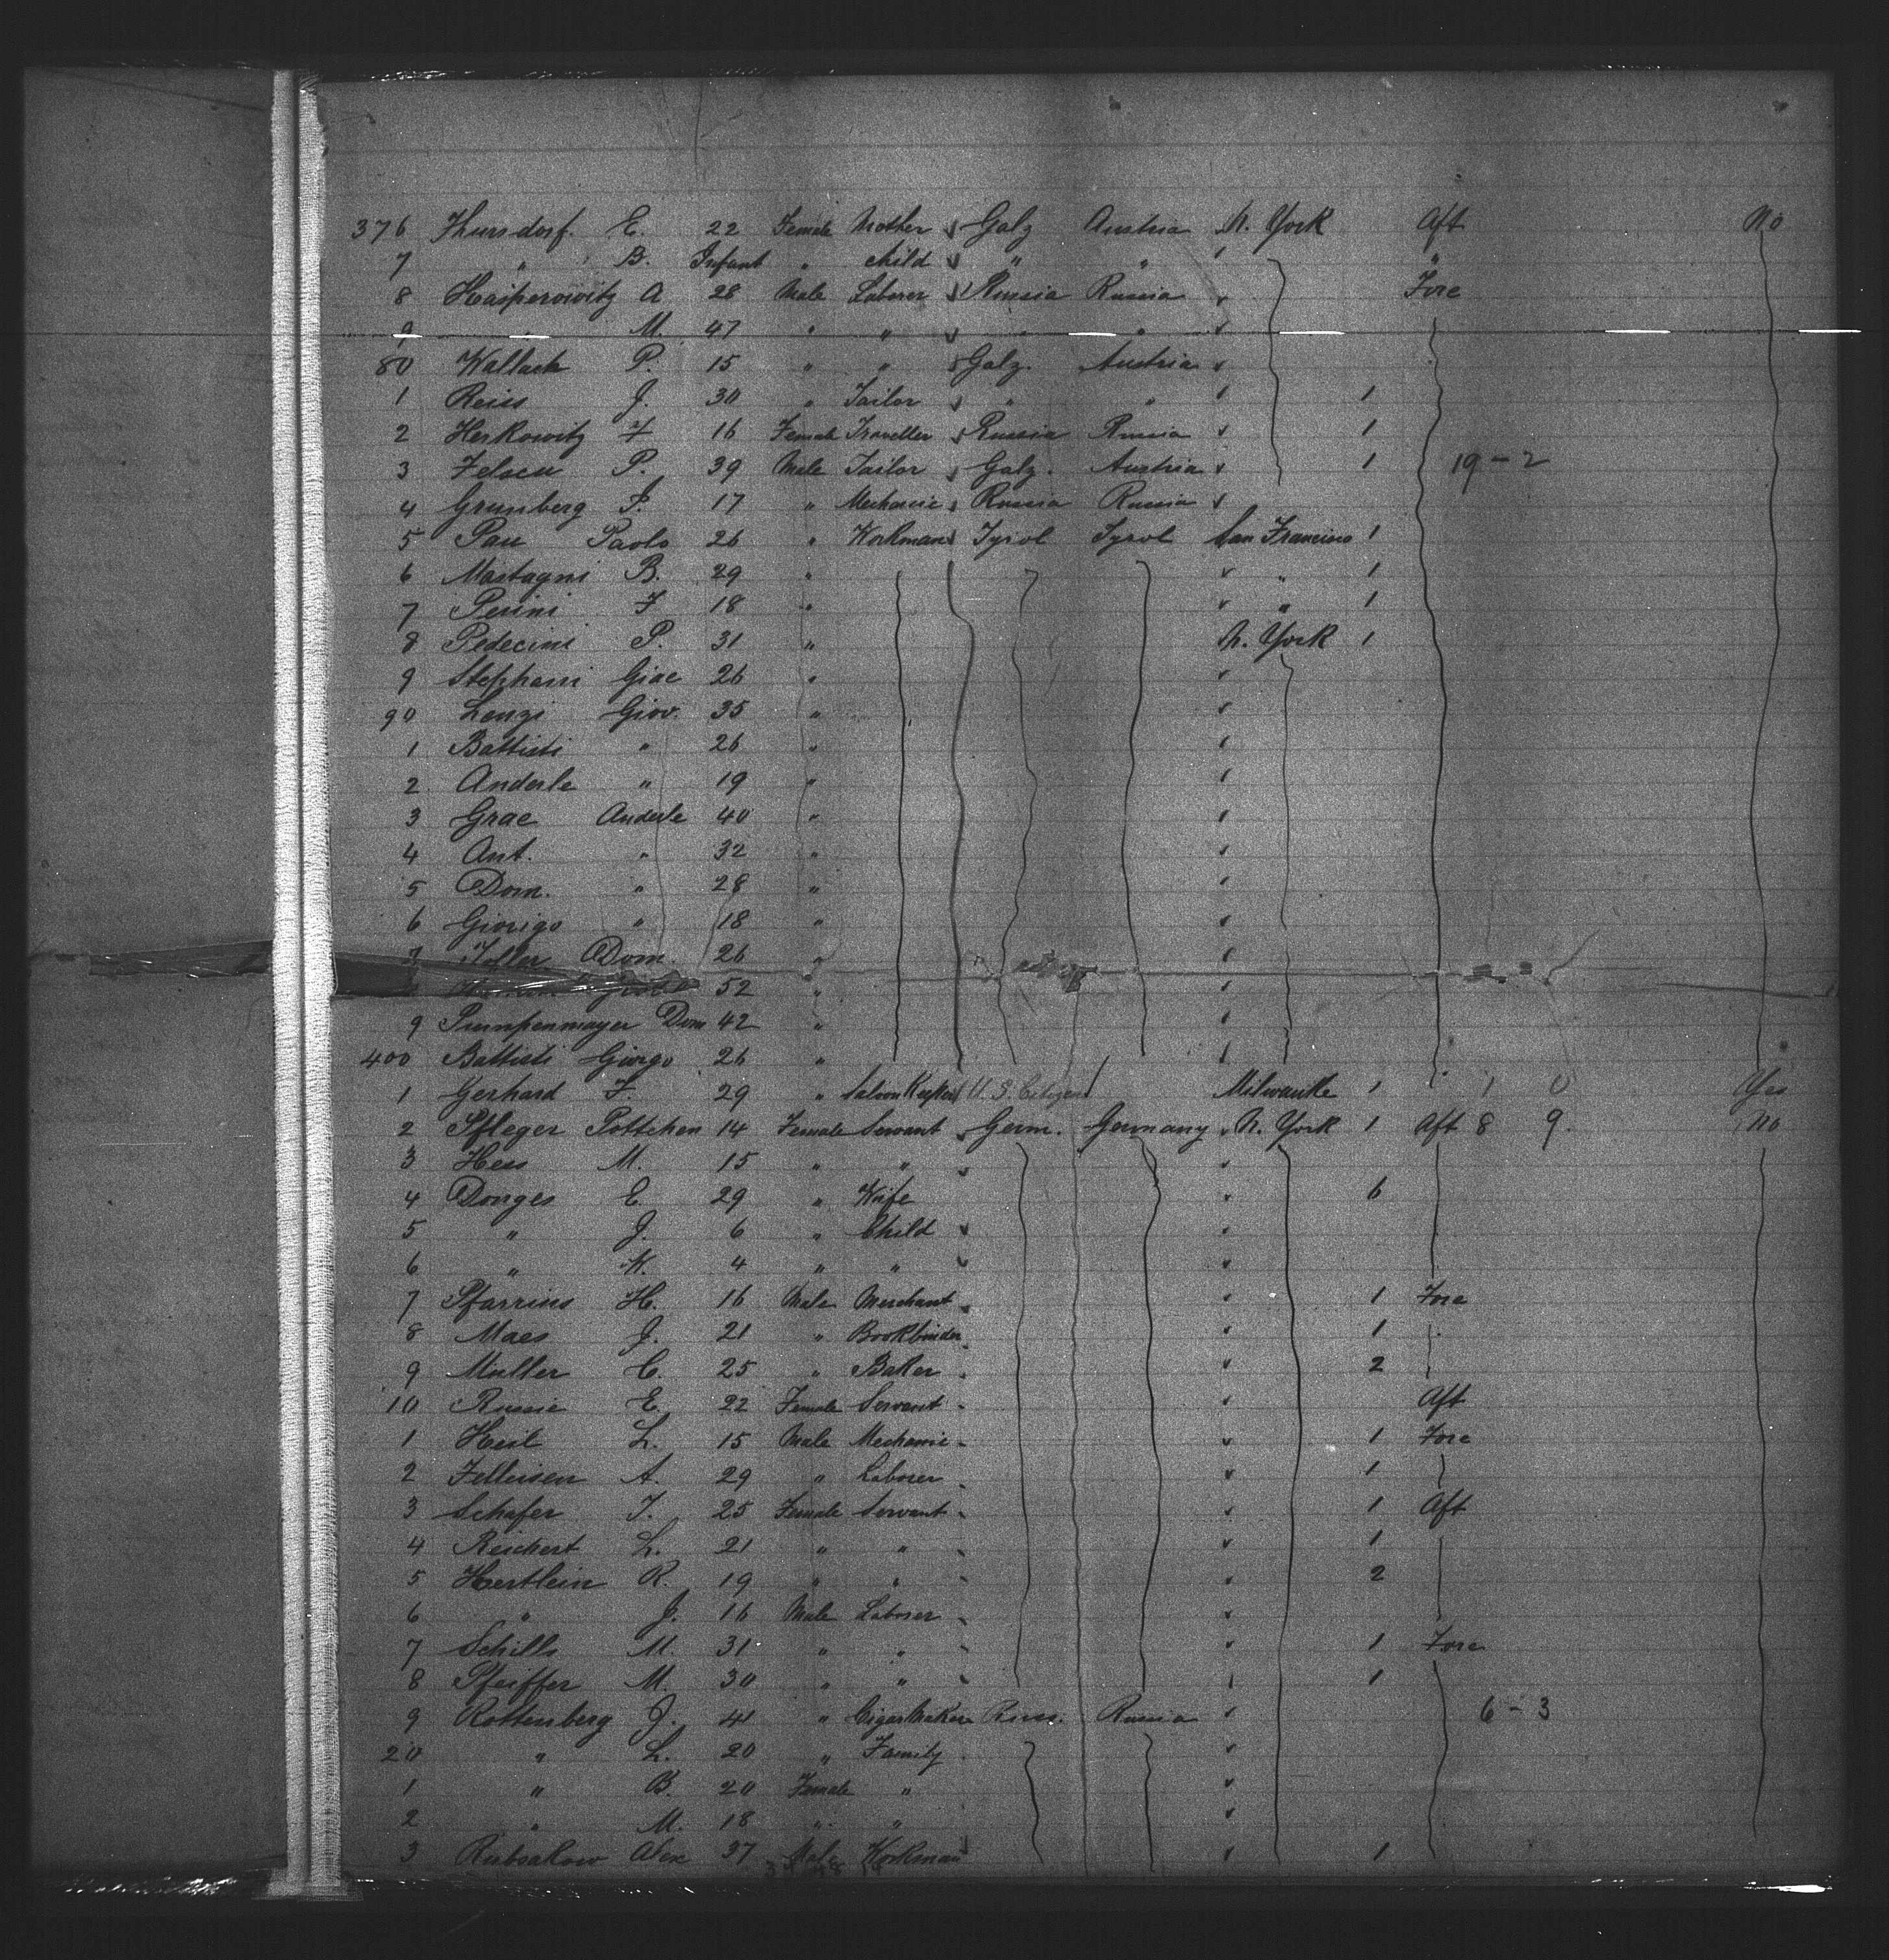 376 Thursdorf. E. 22 Female Mother Galz Austria N. York Aft No
7 " B. Infant " child " " "
8 Kasperowitz A 28 Male Laborer Russia Russia Fore
9 " M. 47 " " " "
80 Wallach P. 15 " " Galz. Austria
1 Reiss J. 30 " Tailor " " 1
2 Herkowitz F 16 Female Traveller Russia Russia 1
3 P. 39 Male Tailor Galz. Austria 1 19-2
4 Grunberg J. 17 " Mechanic Russia Russia
5 Pau Paolo 26 " Workman Tyrol Tyrol San Francisco 1
6 Mastagni B. 29 " " 1
7 Perini F 18 " " 1
8 Pedecini P. 31 " N. York 1
9 Stephani Giac 26 "
90 Lenzi Giov. 35 "
1 Battisti " 26 "
2 Anderle " 19 "
3 Grac Anderle 40 "
4 Ant. " 32 "
5 Dom. " 28 "
6 Giorigo " 18 "
7 Toller Dom. 26 "
52 "
9 Pumpenmayer Dom 42 "
400 Battisti Giorgo 26 "
1 Gerhard F. 29 " Saloon Keeper U. S. Citizen Milwaukee 1 1 0 Yes
2 Pfleger Pottchen 14 Female Servant Germ. Germany N. York 1 Aft 8 9. No
3 Hess M. 15 " "
4 Donges E 29 " Wife 6
5 " J. 6 " Child
6 " K. 4 " "
7 Pfarrius H. 16 Male Merchant 1 Fore
8 Maes J. 21 " Bookbinder 1
9 Muller C. 25 " Baker 2
10 Russie E. 22 Female Servant Aft
1 Heil L. 15 Male Mechanic 1 Fore
2 Felleisen A. 29 " Laborer 1
3 Schafer T. 25 Female Servant 1 Aft
4 Reichert L. 21 " " 1
5 Hertlein R. 19 " " 2
6 " J. 16 Male Laborer
7 Schills M. 31 " " 1 Fore
8 Pfeiffer M. 30 " " 1
9 Rottenberg J. 41 " Cigar Maker Russ. Russia 6-3
20 " L. 20 " Family
1 " B. 20 Female "
2 " M. 18 " "
3 Rubsakow Alex 37 Male Workman 1